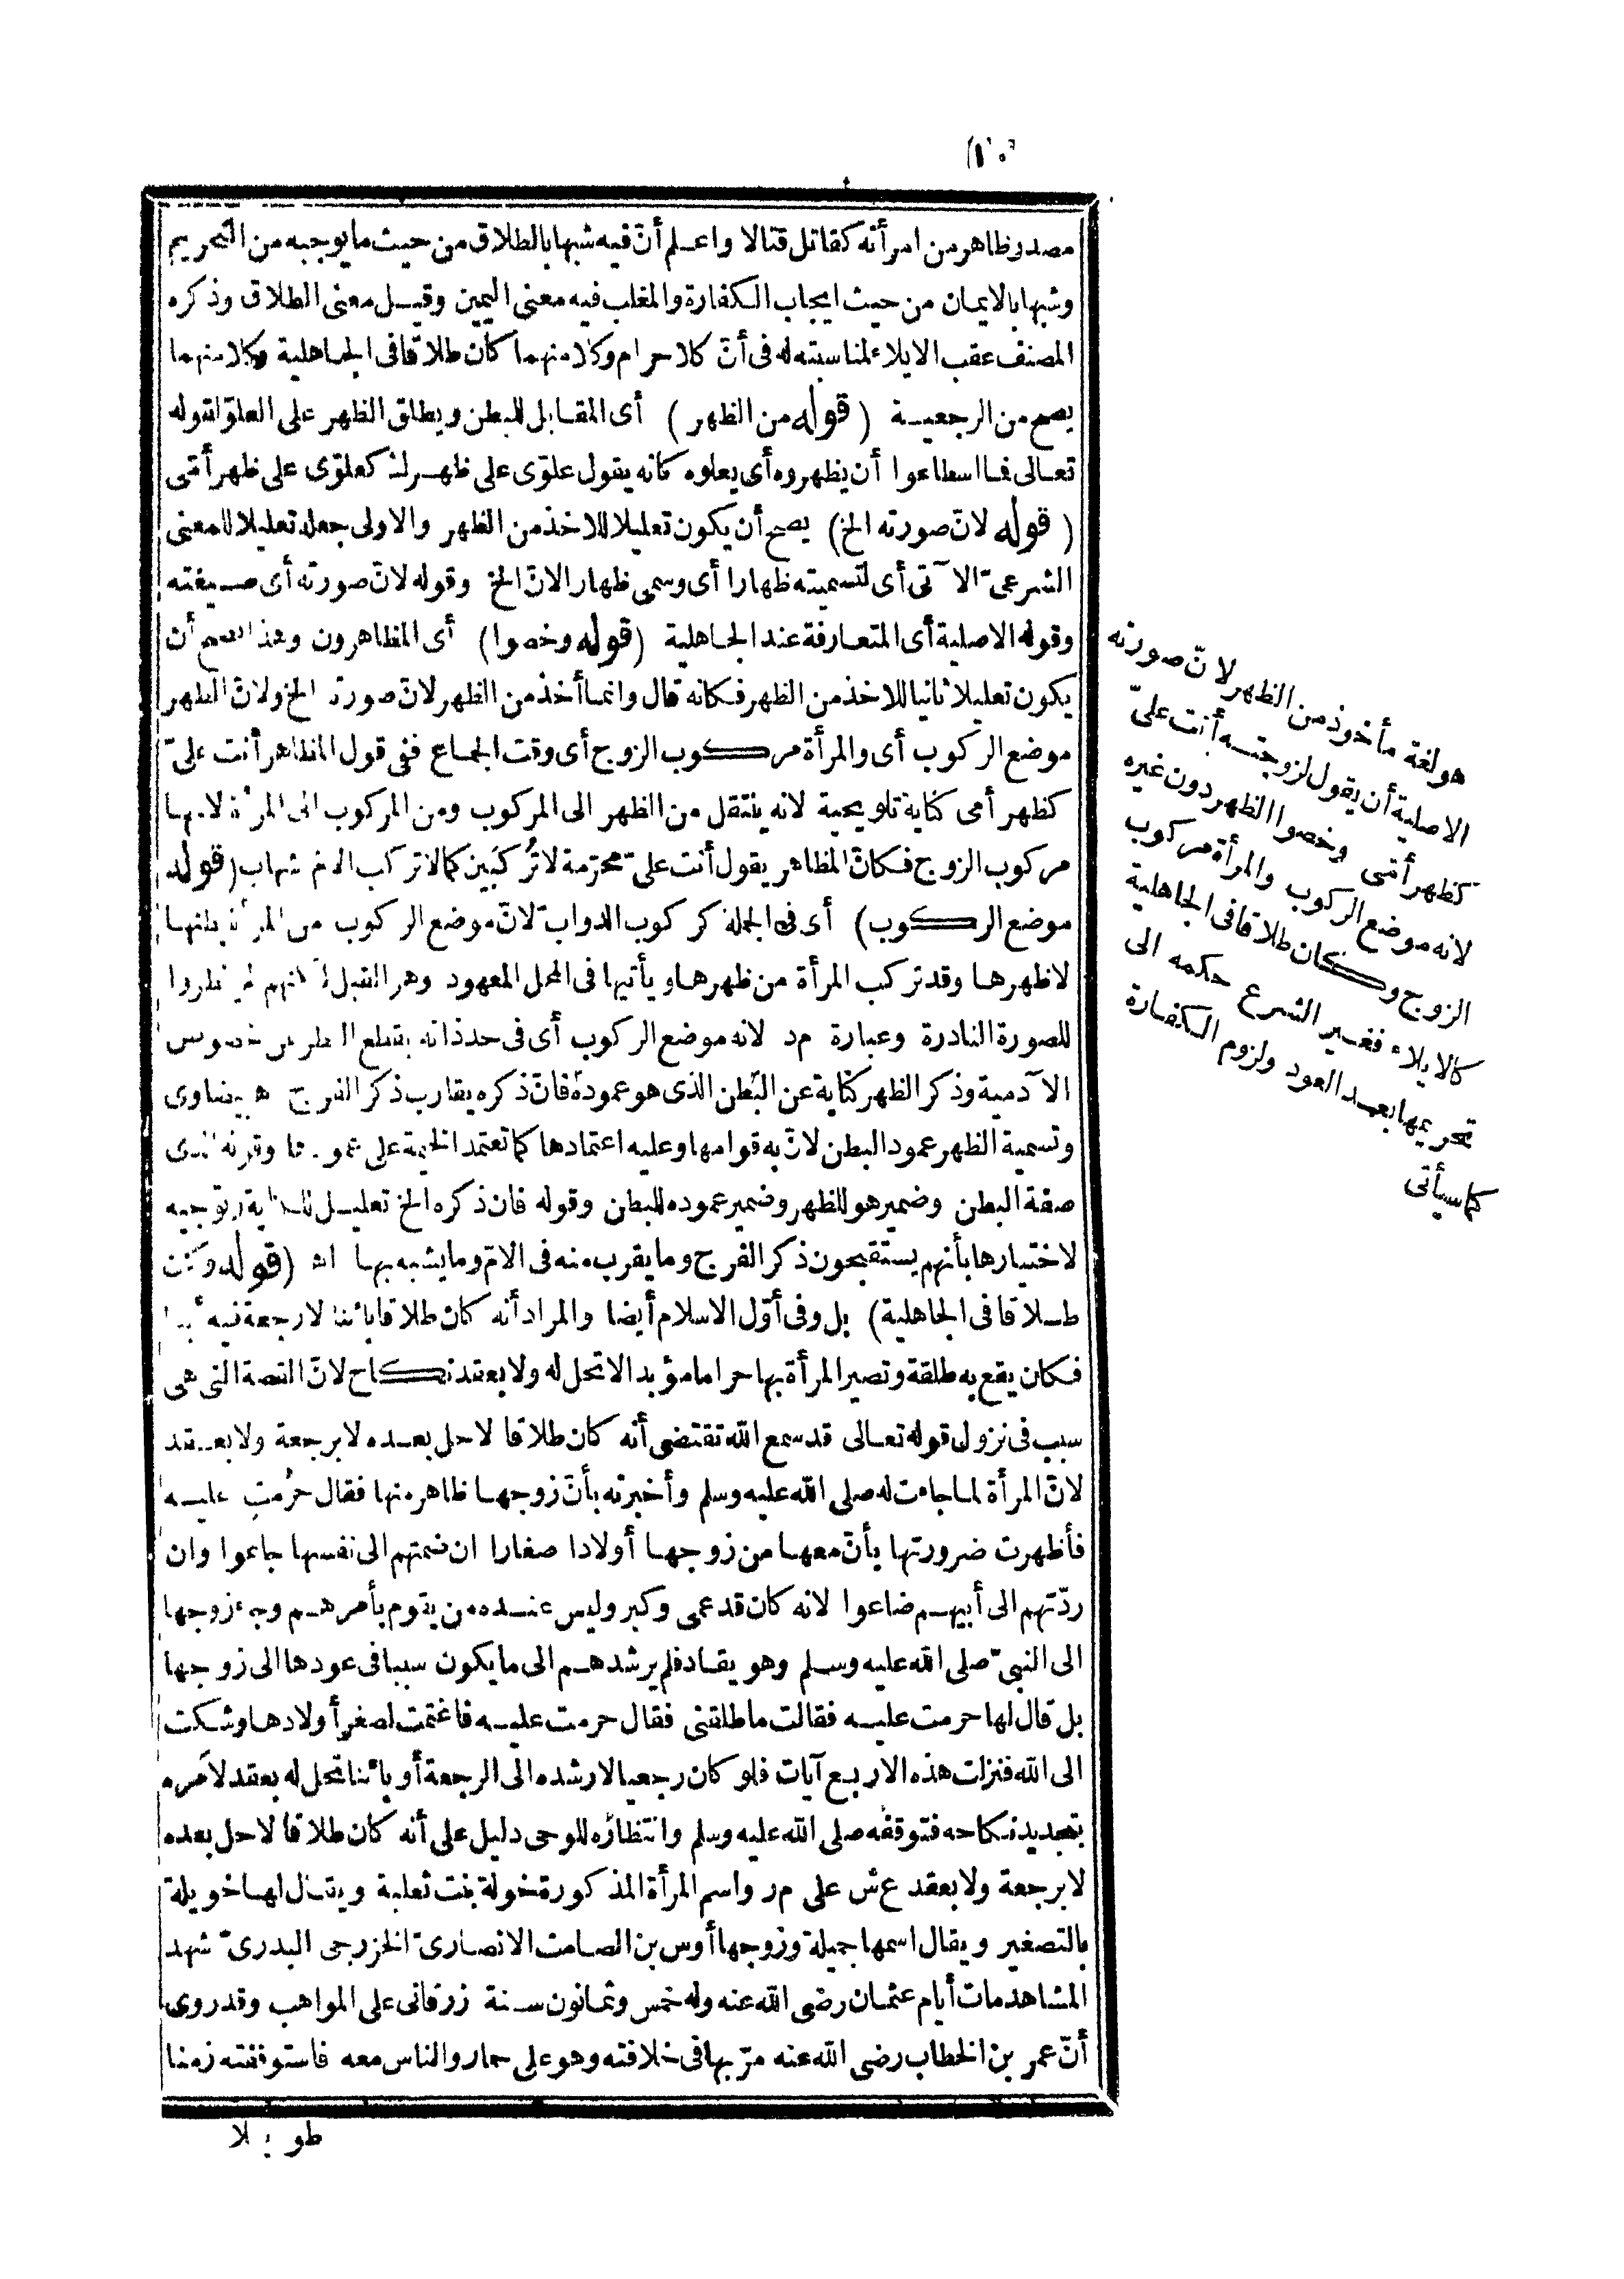 مصدر ظاهر من امرأته كقاتل قتالا واعلم أنّ فيه شبها بالطلاق من حيث ما يوجبه من التحريم
وشبها بالايمان من حيث ايجاب الكفارة والمغلب فيه معنى اليمين وقيل معنى الطلاق وذكره
المصنف عقب الايلاء لمناسبته له فى أنّ كلا حرام وكلا منهما كان طلاقا فى الجاهلية وكلا منهما
يصح من الرجعية (قوله من الظهر) أى المقابل للبطن ويطلق الظهر على العلوّ لقوله
تعالى فما اسطاعوا أن يظهروه أى يعلوه كانه يقول علوّى على ظهرك كعلوّى على ظهر أمّى
(قوله لانّ صورته الخ) يصح أن يكون تعليلا للاخذ من الظهر والاولى جعله تعليلا للمعنى
الشرعىّ الآتى أى لتسميته ظهارا أى وسمى ظهارا لانّ الخ وقوله لانّ صورته أى صيغته
وقوله الاصلية أى المتعارفة عند الجاهلية (قوله وخصوا) أى المظاهرون وهذا يصح أن
يكون تعليلا ثانيا للاخذ من الظهر فكانه قال وانما أخذ من الظهر لانّ صورته الخ ولانّ الظهر
موضع الركوب أى والمرأة مركوب الزوج أى وقت الجماع ففى قول المظاهر أنت علىّ
كظهر أمى كناية تلويحية لانه ينتقل من الظهر الى المركوب ومن المركوب الى المرأة لانها
مركوب الزوج فكانّ المظاهر يقول أنت علىّ محرّمة لا تُركَبين كما لا تركب الام شهاب (قوله
موضع الركوب) أى فى الجملة كركوب الدوابّ لانّ موضع الركوب من المرأة بطنها
لا ظهرها وقد تركب المرأة من ظهرها ويأتيها فى المحل المعهود وهو القبل لكنهم لم ينظروا
للصورة النادرة وعبارة م د لانه موضع الركوب أى فى حد ذاته بقطع النظر عن خصوص
الآدمية وذكر الظهر كناية عن البطن الذى هو عموده فانّ ذكره يقارب ذكر الفرج بيضاوى
وتسمية الظهر عمود البطن لانّ به قوامها وعليه اعتمادها كما تعتمد الخيمة على عمودها وقوله الذى
صفة البطن وضمير هو للظهر وضمير عموده للبطن وقوله فان ذكره الخ تعليل للكناية وتوجيه
لاختيارها بأنهم يستقبحون ذكر الفرج وما يقرب منه فى الامّ وما يشبه بها اه (قوله وكان
طلاقا فى الجاهلية) بل وفى أوّل الاسلام أيضا والمراد أنه كان طلاقا بائنا لا رجعة فيه أبدا
فكان يقع به طلقة وتصير المرأة بها حراما مؤبدا لا تحل له ولا بعقد نكاح لانّ القصة التى هى
سبب فى نزول قوله تعالى قد سمع الله تقتضى أنه كان طلاقا لا حل بعده لا برجعة ولا بعقد
لانّ المرأة لما جاءت له صلى الله عليه وسلم وأخبرته بأنّ زوجها ظاهر منها فقال حرُمتِ عليه
فأظهرت ضرورتها بأنّ معها من زوجها أولادا صغارا ان ضمتهم الى نفسها جاعوا وان
ردّتهم الى أبيهم ضاعوا لانه كان قد عمى وكبر وليس عنده من يقوم بأمرهم وجاء زوجها
الى النبىّ صلى الله عليه وسلم وهو يقاد فلم يرشدهم الى ما يكون سببا فى عودها الى زوجها
بل قال لها حرمت عليه فقالت ما طلقنى فقال حرمت عليه فاغتمّت لصغر أولادها وشكت
الى الله فنزلت هذه الاربع آيات فلو كان رجعيا لارشده الى الرجعة أو بائنا تحل له بعقد لامره
بتجديد نكاحه فتوقفه صلى الله عليه وسلم وانتظاره للوحى دليل على أنه كان طلاقا لا حل بعده
لا برجعة ولا بعقد ع ش على م ر واسم المرأة المذكورة خولة بنت ثعلبة ويقال لها خويلة
بالتصغير ويقال اسمها جميلة وزوجها أوس بن الصامت الانصارىّ الخزرجى البدرىّ شهد
المشاهد مات أيام عثمان رضى الله عنه وله خمس وثمانون سنة زرقانى على المواهب وقد روى
أنّ عمر بن الخطاب رضى الله عنه مرّ بها فى خلافته وهو على حمار والناس معه فاستوقفته زمنا
طويلا
هو لغة مأخوذ من الظهر لانّ صورته
الاصلية أن يقول لزوجته أنت علىّ
كظهر أمّى وخصوا الظهر دون غيره
لانه موضع الركوب والمرأة مركوب
الزوج وكان طلاقا فى الجاهلية
كالايلاء فغير الشرع حكمه الى
تحريمها بعد العود ولزوم الكفارة
كما سيأتى